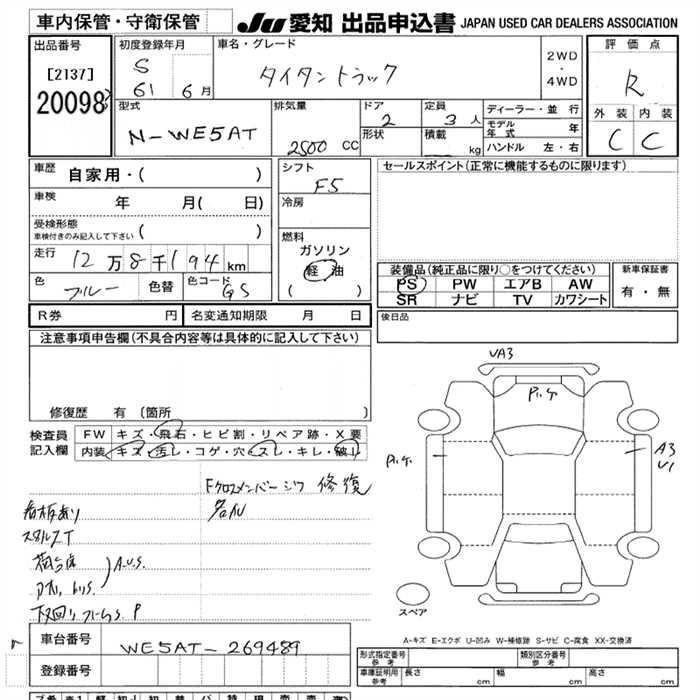 車内保管・守衛保管 JU 愛知 出品申込書 JAPAN USED CAR DEALERS ASSOCIATION
出品番号 初度登録年月 車名・グレード 評価点
[2137] S 2WD
20098 61 6月 タイタントラック ・ R
4WD
外装 内装
型式 排気量 ドア 定員 ディーラー・並行 C C
N-WE5AT 2500 CC 2 3人 モデル年式 年
形状 積載 kg ハンドル 左・右
車歴 自家用・( ) シフト セールスポイント(正常に機能するものに限ります)
F5
車検 年 月( 日) 冷房
受検形態
車検付きのみ記入して下さい ( ) 燃料
ガソリン
走行 12万8千194km 軽油 装備品(純正品に限り○をつけてください) 新車保証書
色 ブルー 色替 色コード GS ( ) PS PW エアB AW 有・無
SR ナビ TV カワシート
R券 円 名変通知期限 月 日 後日品
注意事項申告欄(不具合内容等は具体的に記入して下さい)
VA3
修復歴 有(箇所
検査員 FW キズ・飛石・ヒビ割・リペア跡・X要
記入欄 内装・キズ・汚し・コゲ・穴・スレ・キレ・破れ
A3
V1
Fクロスメンバー ジワ 修復
看板あり
A.U.S.
スペア
A-キズ E-エクボ U-凹み W-補修跡 S-サビ C-腐食 XX-交換済
車台番号 WE5AT-269489
登録番号
形式指定番号 参考 類別区分番号 参考
車庫証明用 参考 長さ cm 幅 cm 高さ cm